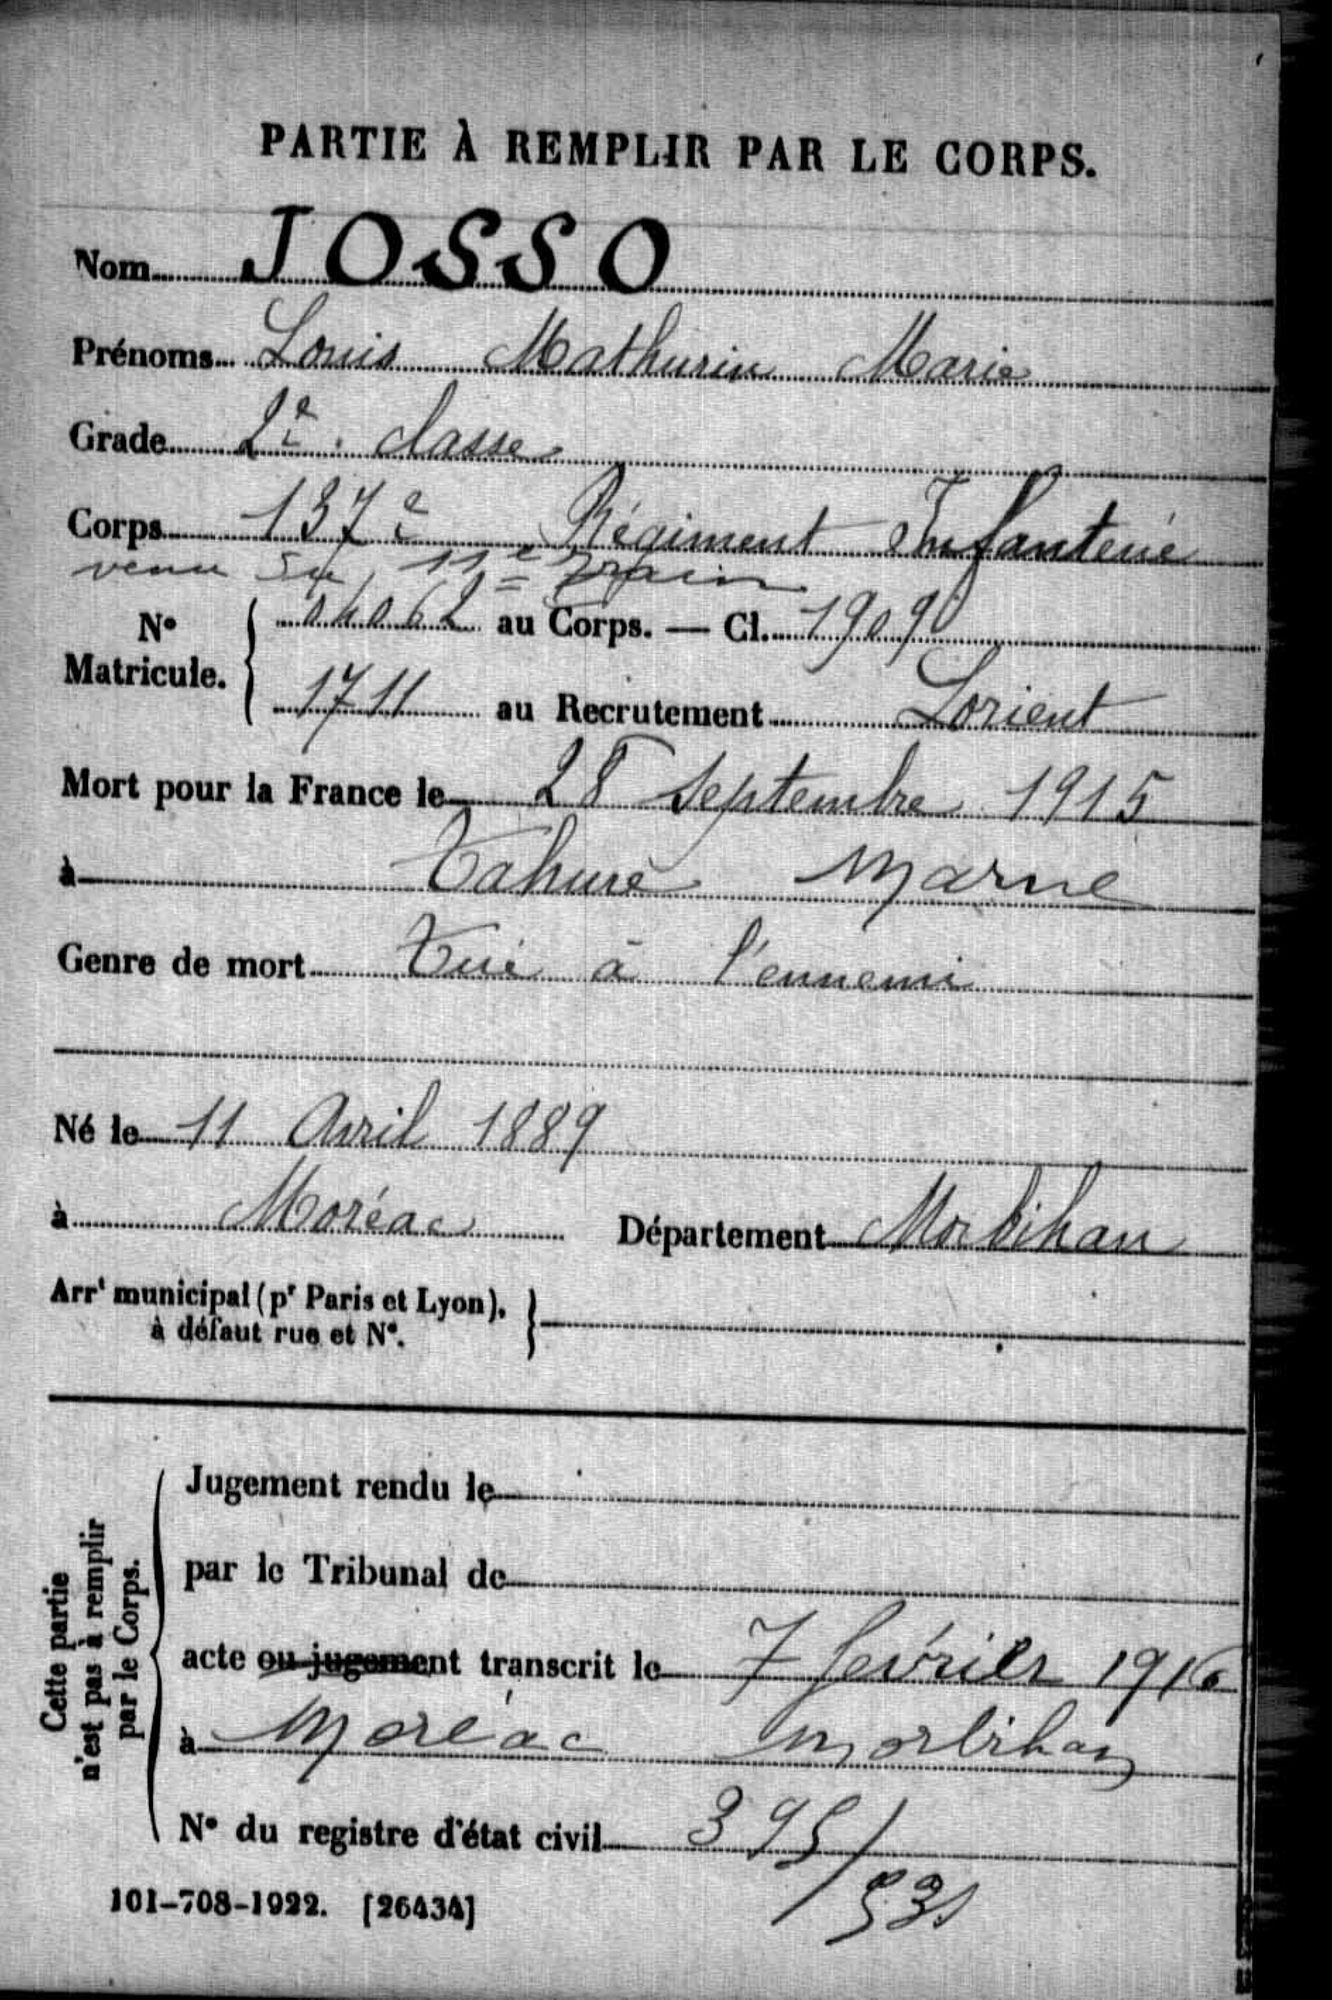 PARTIE À REMPLIR PAR LE CORPS.
Nom JOSSO
Prénoms Louis Mathurin Marie
Grade 2e classe
Corps 137e Régiment Infanterie
venu du 11e Train
No Matricule. 04062 au Corps. — Cl. 1909
1711 au Recrutement Lorient
Mort pour la France le 28 Septembre 1915
à Tahure Marne
Genre de mort Tué à l'ennemi
Né le 11 Avril 1889
à Moréac Département Morbihan
Arrt municipal (pr Paris et Lyon),
à défaut rue et No.
Cette partie
n'est pas à remplir
par le Corps.
Jugement rendu le
par le Tribunal de
acte ou jugement transcrit le 7 février 1916
à Moréac Morbihan
No du registre d'état civil 395/531
101-708-1922. [26434]